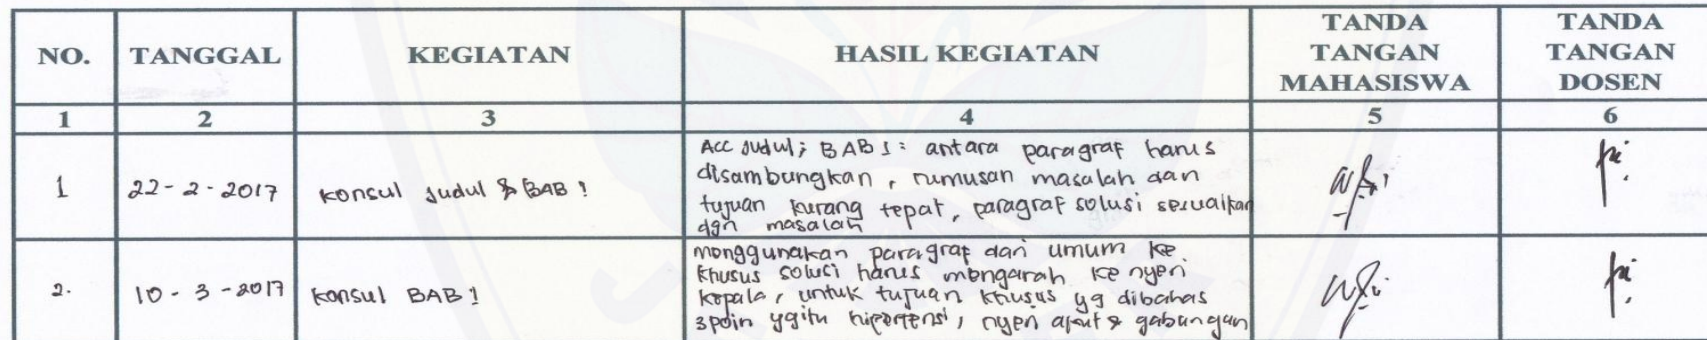 NO. TANGGAL KEGIATAN HASIL KEGIATAN TANDA TANGAN MAHASISWA TANDA TANGAN DOSEN
1 2 3 4 5 6
1 22-2-2017 konsul Judul & BAB 1
Acc Judul; BAB 1: antara paragraf harus
disambungkan, rumusan masalah dan
tujuan kurang tepat, paragraf solusi sesuaikan
dgn masalah
2. 10-3-2017 konsul BAB 1
menggunakan paragraf dari umum ke
khusus solusi harus mengarah ke nyeri
kepala, untuk tujuan khusus yg dibahas
3 poin ygitu hipertensi, nyeri akut & gabungan